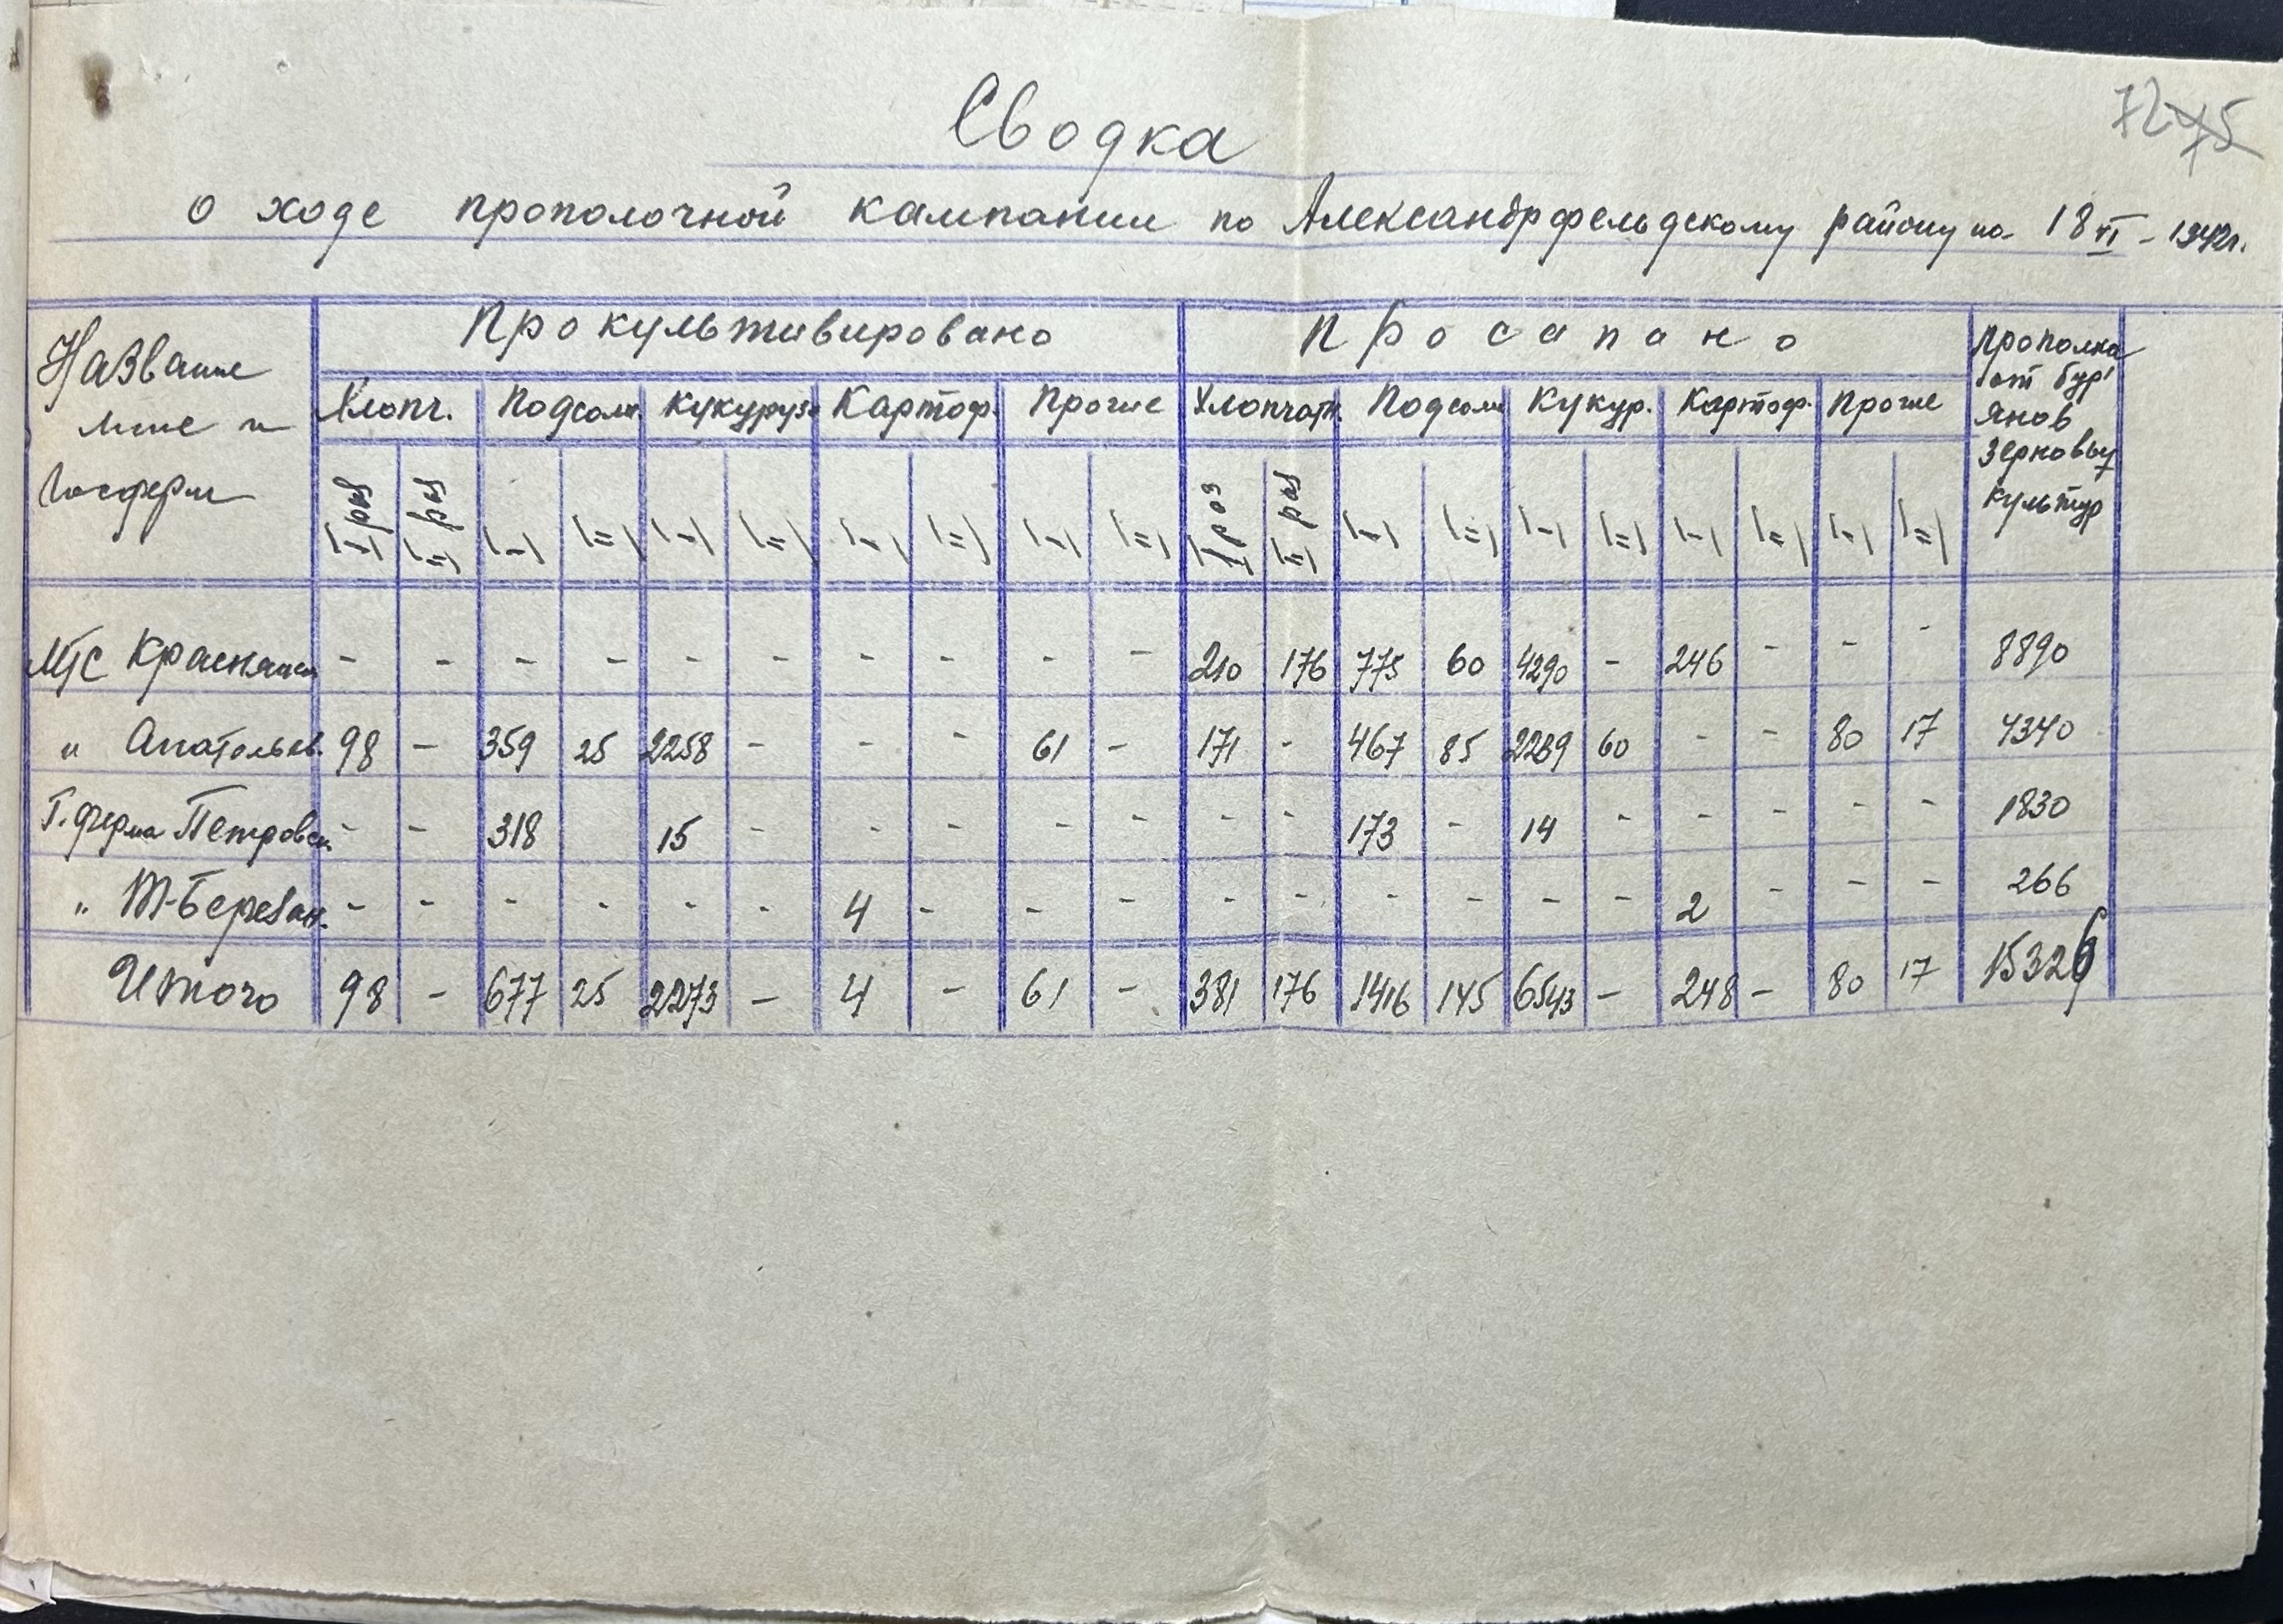 72 75
Сводка
о ходе прополочной кампании по Александрфельдскому району на 18 VI - 1942г.
Название
мтс и
Госферм
Прокультивировано
Просапано
Прополка
от бур'
янов
зерновых
культур
Хлопч. Подсолн. Кукуруза Картоф. Прочие Хлопчатн. Подсолн. Кукур. Картоф. Прочие
I раз II раз I-I I=I I-I I=I I-I I=I I-I I=I I раз II раз I-I I=I I-I I=I I-I I=I I-I I=I
МТС Краснянск - - - - - - - - - - 210 176 775 60 4290 - 246 - - - 8890
" Анатольев. 98 - 359 25 2258 - - - 61 - 171 - 467 85 2239 60 - - 80 17 4340
Г. ферма Петровск. - - 318 15 - - - - - - - 173 - 14 - - - - - 1830
" Т-Березан. - - - - - - 4 - - - - - - - - - 2 - - - 266
Итого 98 - 677 25 2273 - 4 - 61 - 381 176 1416 145 6543 - 248 - 80 17 15326